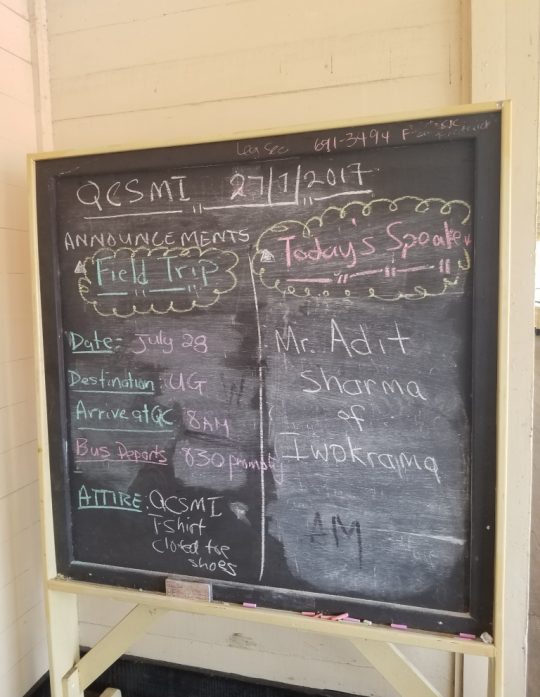 691-3494
QCSMI 27/7/2017
ANNOUNCEMENTS
Field Trip
Date:- July 28
Destination: UG
Arrive at QC 8AM
Bus Departs 830 promptly
ATTIRE: QCSMI
T-Shirt
Closed toe
shoes
Today's Speaker
Mr. Adit
Sharma
of
Iwokrama
AM